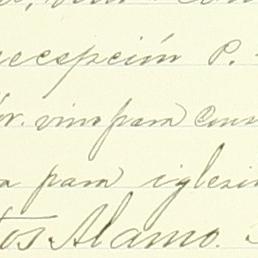 recepción P.
vino para con
a para iglesi
tos Alamo.